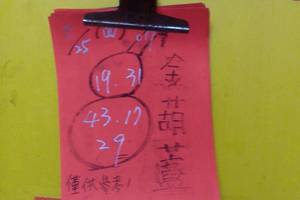 (四)
25
19.31
43.17
29
金葫蘆
僅供參考!